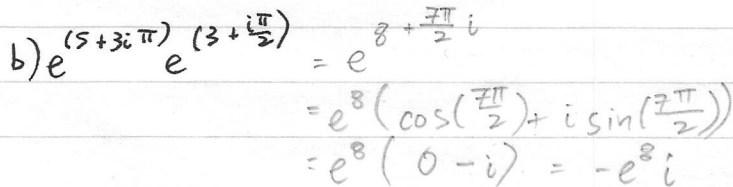 b) e^(5+3iπ) e^(3+iπ/2) = e^(8+7π/2 i)
= e^8 (cos(7π/2) + i sin(7π/2))
= e^8 (0 - i) = -e^8 i